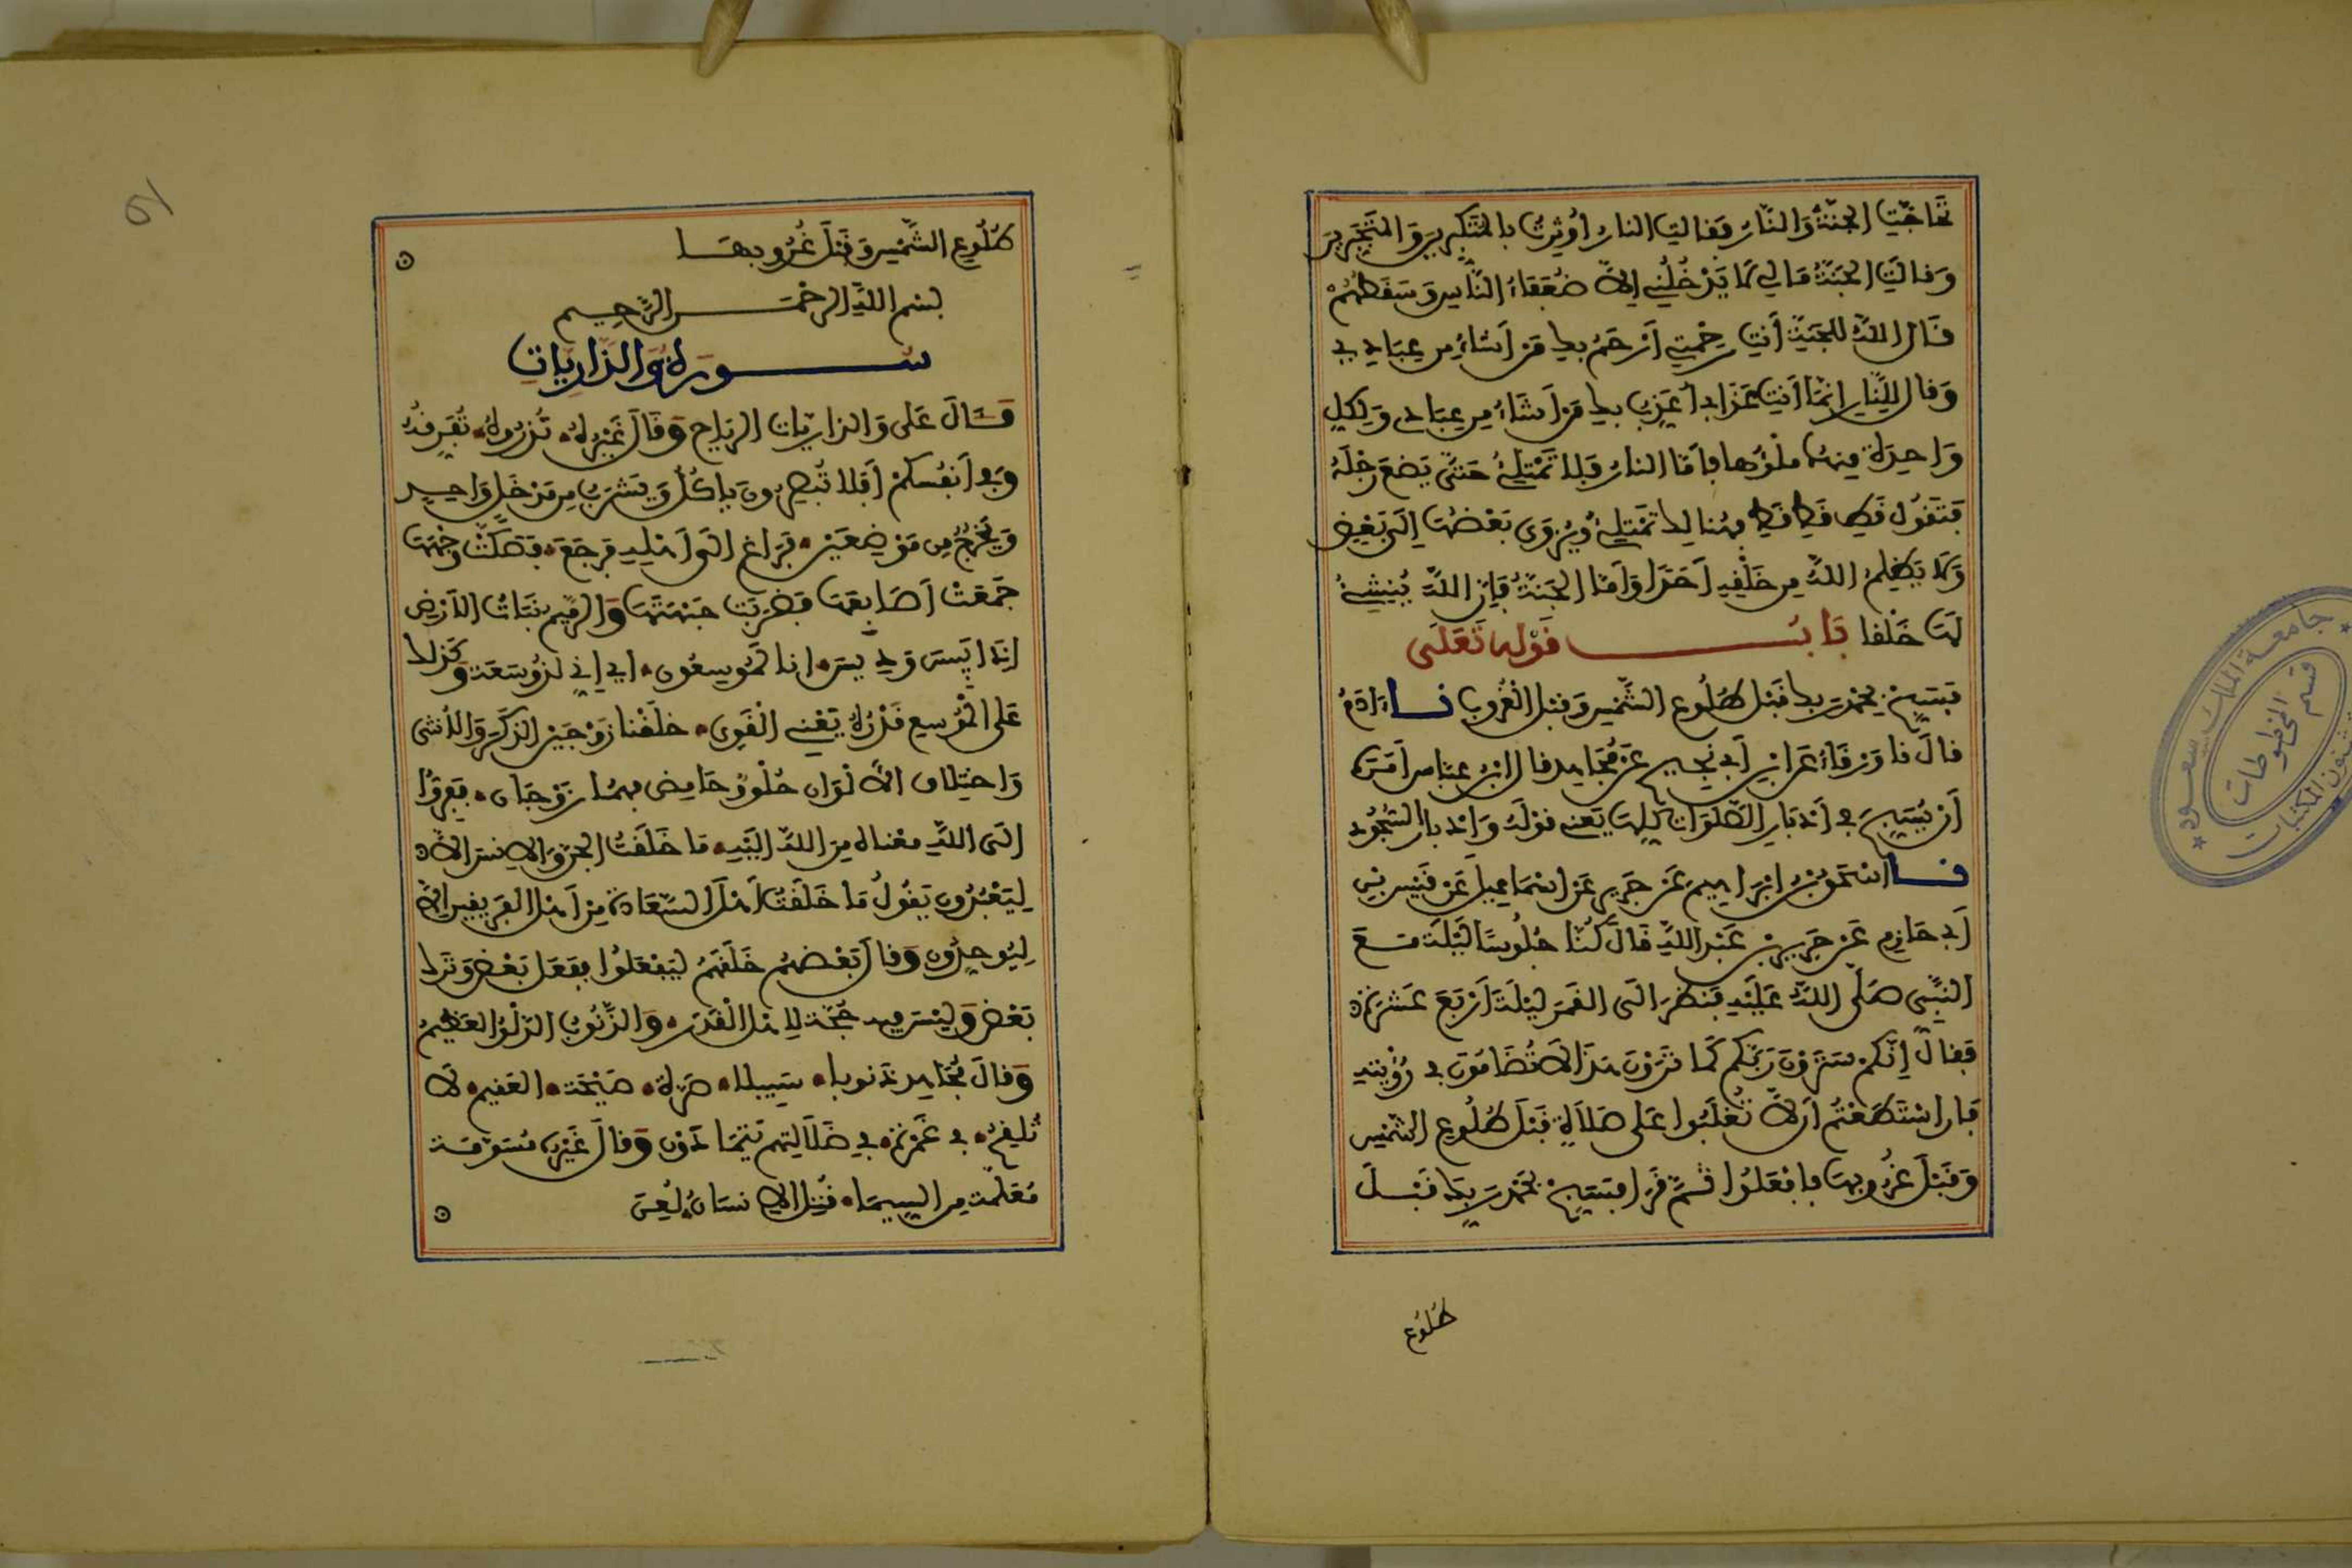 تحاجت الجنة والنار فقالت النار اوثرت بالمتكبرين والمتجبرين
وقالت الجنة مالي لا يدخلني إلا ضعفاء الناس وسقطهم
قال الله للجنة أنت رحمتي أرحم بك من أشاء من عبادي
وقال للنار إنما أنت عذاب أعذب بك من أشاء من عبادي ولكل
واحدة منهما ملؤها فأما النار فلا تمتلئ حتى يضع رجله
فتقول قط قط قط فهنالك تمتلئ ويزوى بعضها إلى بعض
ولا يظلم الله من خلقه أحدا وأما الجنة فإن الله ينشئ
لها خلقا باب قوله تعلى
فسبح بحمد ربك قبل طلوع الشمس وقبل الغروب نا ءادم
قال نا ورقاء عن ابن أبي نجيح عن مجاهد قال ابن عباس أمره
أن يسبح في أدبار الصلوات كلها يعني قوله وادبار السجود
نا اسحق بن ابراهيم عن جرير عن اسماعيل عن قيس بن
أبي حازم عن جرير بن عبد الله قال كنا جلوسا ليلة مع
النبي صلى الله عليه فنظر الى القمر ليلة أربع عشرة
فقال إنكم سترون ربكم كما ترون هذا لا تضامون في رؤيته
فإن استطعتم أن لا تغلبوا على صلاة قبل طلوع الشمس
وقبل غروبها فافعلوا ثم قرأ فسبح بحمد ربك قبل
طلوع
طلوع الشمس وقبل غروبها
بسم الله الرحمن الرحيم
سورة والذاريات
قال على والذاريات الرياح وقال غيره تذروه تفرقه
وفي أنفسكم أفلا تبصرون ياكل ويشرب من مدخل واحد
ويخرج من موضعين فراغ الى أهله فرجع فصكت وجهها
جمعت أصابعها فضربت جبهتها والرميم نبات الأرض
اذا يبس وديس انا لموسعون اي إني لذو سعة وكذلك
على الموسع قدره يعني القوي خلقنا زوجين الذكر والأنثى
واختلاف الألوان حلو وحامض فهما زوجان ففروا
الى الله معناه من الله اليه ما خلقت الجن والانس الا
ليعبدون يقول ما خلقت أهل السعادة من أهل الفريقين إلا
ليوحدون وقال بعضهم خلقهم ليفعلوا ففعل بعض وترك
بعض وليس فيه حجة لاهل القدر والذنوب الدلو العظيم
وقال مجاهد ذنوبا سبيلا صرة صيحة العقيم لا
تلقح في غمرة في ضلالتهم يتمادون وقال غيره مسومة
معلمة من السيماء قتل الانسان لعن